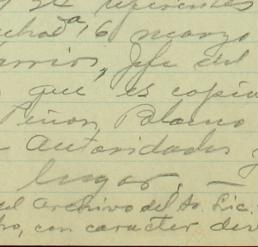 y 24 referentes
fechada 16 marzo
Barrios, Jefe del
que es copia
Peñon Blanco
Autoridades y
lugar, —
el Archivo del Sr. Lic.
ro, con caracter de